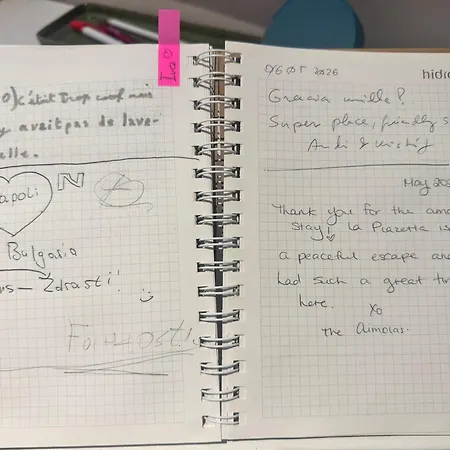 c'était trop cool mais
y avait pas de lave-
elle.
apoli
N
Bulgaria
Zdrasti!
06 05 2026
hidro
Grazia mille!
Super place, friendly s
Andi &
May 202
Thank you for the ama
stay! La Piazetta is
a peaceful escape and
had such a great tim
here. Xo
The Aimolas.